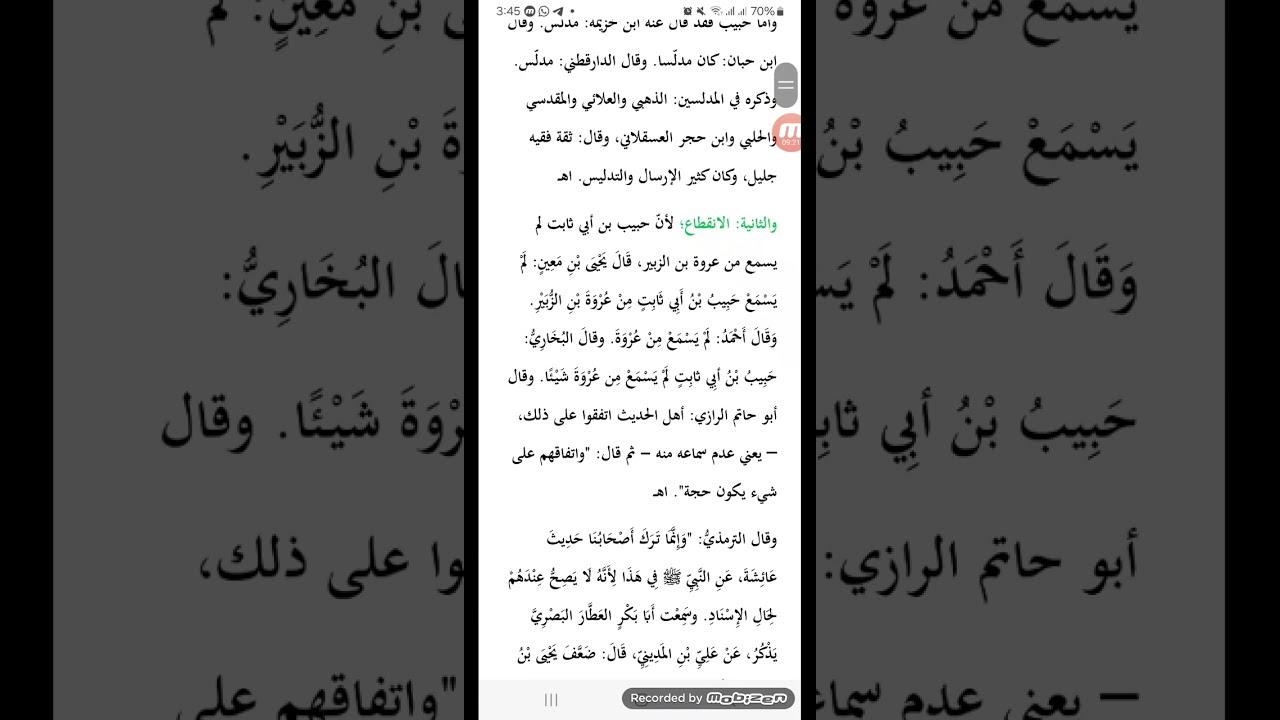 3:45
70%
وأما حبيب فقد قال عنه ابن خزيمة: مدلس. وقال
ابن حبان: كان مدلّسا. وقال الدارقطني: مدلّس.
وذكره في المدلسين: الذهبي والعلائي والمقدسي
والحلبي وابن حجر العسقلاني، وقال: ثقة فقيه
جليل، وكان كثير الإرسال والتدليس. اهـ
والثانية: الانقطاع؛ لأنّ حبيب بن أبي ثابت لم
يسمع من عروة بن الزبير، قَالَ يَحْيَى بْنِ مَعِينٍ: لَمْ
يَسْمَعْ حَبِيبُ بْنُ أَبِي ثَابِتٍ مِنْ عُرْوَةَ بْنِ الزُّبَيْرِ.
وَقَالَ أَحْمَدُ: لَمْ يَسْمَعْ مِنْ عُرْوَةَ. وقالَ البُخَارِيُّ:
حَبِيبُ بْنُ أَبِي ثابِتٍ لَمْ يَسْمَعْ مِن عُرْوَةَ شَيْئًا. وقال
أبو حاتم الرازي: أهل الحديث اتفقوا على ذلك،
– يعني عدم سماعه منه – ثم قال: "واتفاقهم على
شيء يكون حجة". اهـ
وقال الترمذيُّ: "وَإِنَّمَا تَرَكَ أَصْحَابُنَا حَدِيثَ
عَائِشَةَ، عَنِ النَّبِيِّ ﷺ فِي هَذَا لِأَنَّهُ لَا يَصِحُّ عِنْدَهُمْ
لِحَالِ الإِسْنَادِ. وسَمِعْت أَبَا بَكْرٍ العَطَّارَ البَصْرِيَّ
يَذْكُرُ، عَنْ عَلِيِّ بْنِ المَدِينِيِّ، قَالَ: ضَعَّفَ يَحْيَى بْنُ
09:21
Recorded by Mobizen
يَسْمَعُ مِنْ
مَعِينٍ: لَمْ
يَسْمَعْ حَبِيبُ بْنُ
ةَ بْنِ الزُّبَيْرِ.
وَقَالَ أَحْمَدُ: لَمْ
الَ البُخَارِيُّ:
حَبِيبُ بْنُ أَبِي ثابِ
رْوَةَ شَيْئًا. وقال
أبو حاتم الرازي:
وا على ذلك،
– يعني عدم سما
"واتفاقهم على